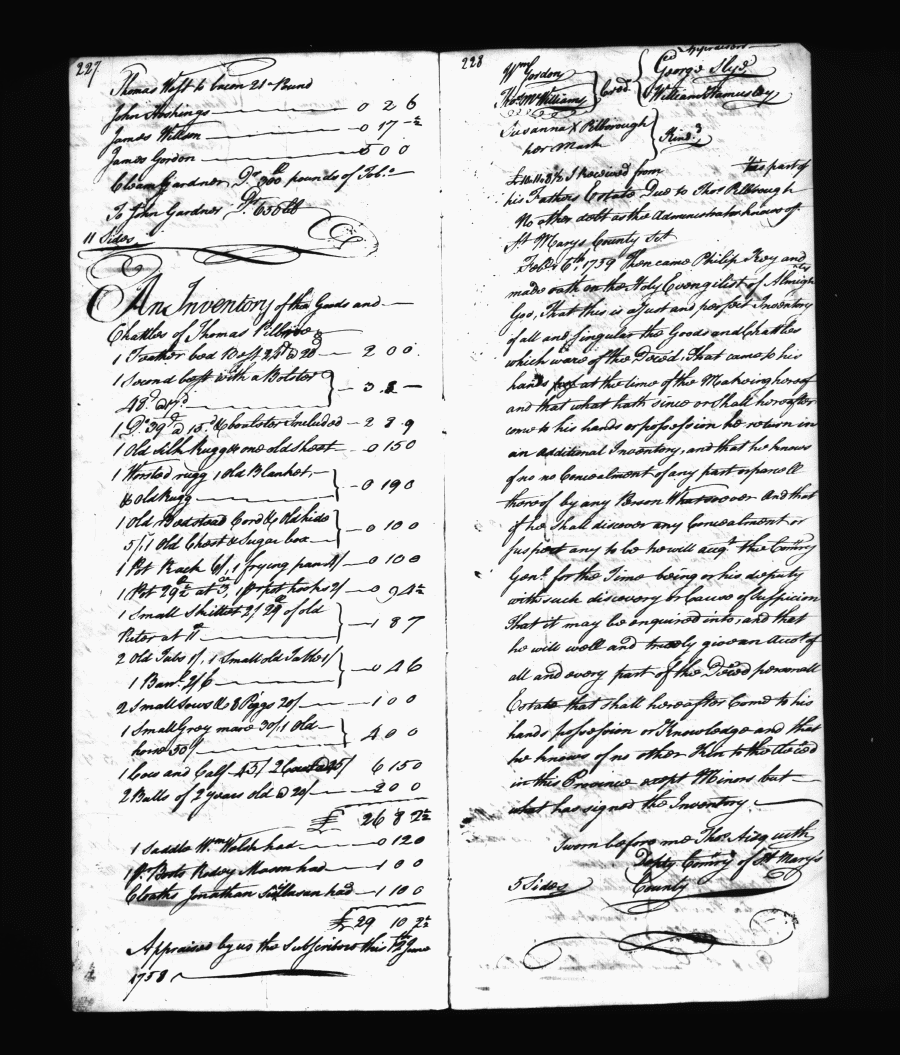 227
Thomas West to bacon 21 Pound
John Hoskings 0 2 6
James Willson 0 17 ½
James Gordon 5 0 0
Cleam Gardner Dr. 300 pounds of Tobo.
To John Gardner Dr. 636 lb
11 Sides
An Inventory of the Goods and
Chattles of Thomas
1 Feather bed Best 24 @ 20d 2 0 0
1 Second best with a Bolster
48 @ 3
1 Do. 39 @ 15d & boalster Included 2 8 9
1 Old silk Rugg & one old sheet 0 15 0
1 Worsted rugg 1 Old Blanket
& Old Rugg 0 19 0
1 Old Bedstead Cord & Old hide
5/, 1 Old Chest & Sugar box 0 10 0
1 Pot Rack 6/, 1 frying pan 4/ 0 10 0
1 Pot 29 at 3, 1 pr pot hooks 2/ 0 9 4½
1 Small Skillet 2/ 29 of old
Puter at 11d 1 8 7
2 Old Tubs 1/, 1 Small old Table 1/
1 Barrl. 2/6 0 4 6
2 Small Sows & 8 Piggs 20/ 1 0 0
1 Small Grey mare 30/ 1 Old
horse 50/ 4 0 0
1 Cow and Calf 45/ 2 45/ 6 15 0
2 Bulls of 2 years old @ 20/ 2 0 0
£ 26 8 2½
1 Saddle Wm Welsh had 0 12 0
1 Pr. Boots Rodey Mason had 1 0 0
Cloaths Jonathan had 1 10 0
£ 29 10 2½
Appraised by us the Subscribers this 12th June
1758
228
Appraisors
Wm Gordon
Thos. McWilliams
Cred.
George Slye
William Hamersley
Susanna X Pilborough
her Mark
Kind.
I Received from this part of
his Fathers Estate Due to Thos Pilbrough
No other debt as the Administrator knows of
St Marys County Sct.
Febr. 6th, 1759 Then came Philip Key and
made oath on the Holy Evengilist of Almighty
God, That this is a Just and perfect Inventory
of all and Singular the Goods and Chattles
which ware of the Deced: That came to his
hands at the time of the Makeing hereof
and that what hath since or Shall hereafter
come to his hands or possession he return in
an additional Inventory, and that he knows
of no no Concealment of any part or parcell
thereof by any Person Whatsoever And that
if he Shall discover any Concealment or
suspect any to be he will acqt. the Comry
Genl. for the Time being or his deputy
with such discovery or Cause of Suspicion
That it may be enquired into, and that
he will well and truely give an Acct of
all and every part of the Deced personall
Estate that shall hereafter Come to his
hands possession or Knowledge and that
he knows of no other Kin to the deced
in this Province except Minors but
what has signed the Inventory.
Sworn before me Thos. Aisquith
Depty Comry of St Marys
County
5 Sides